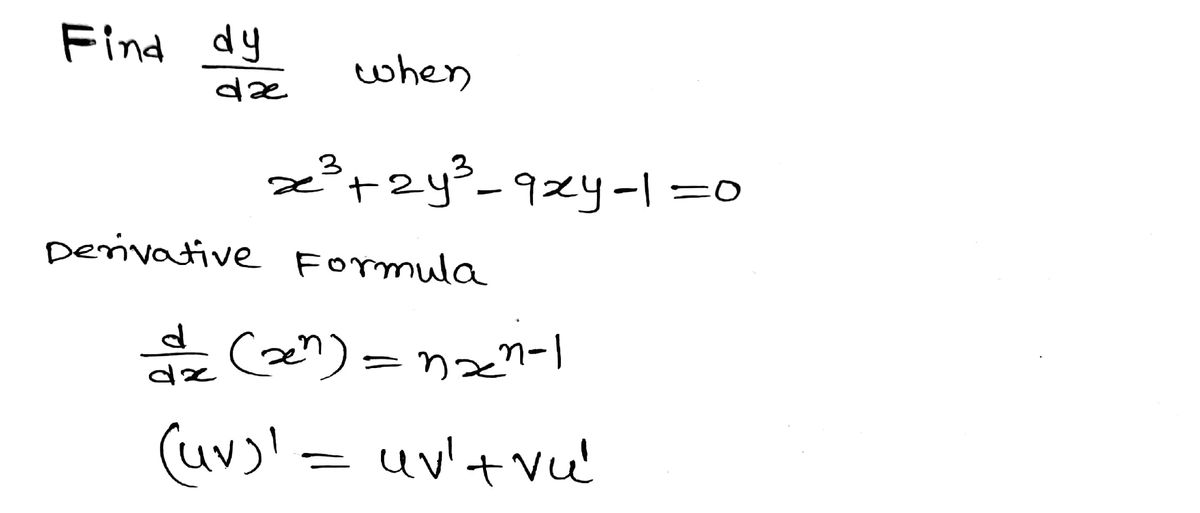 Find dy/dx when
x³+2y³-9xy-1=0
Derivative Formula
d/dx (xⁿ) = nxⁿ⁻¹
(uv)' = uv'+vu'